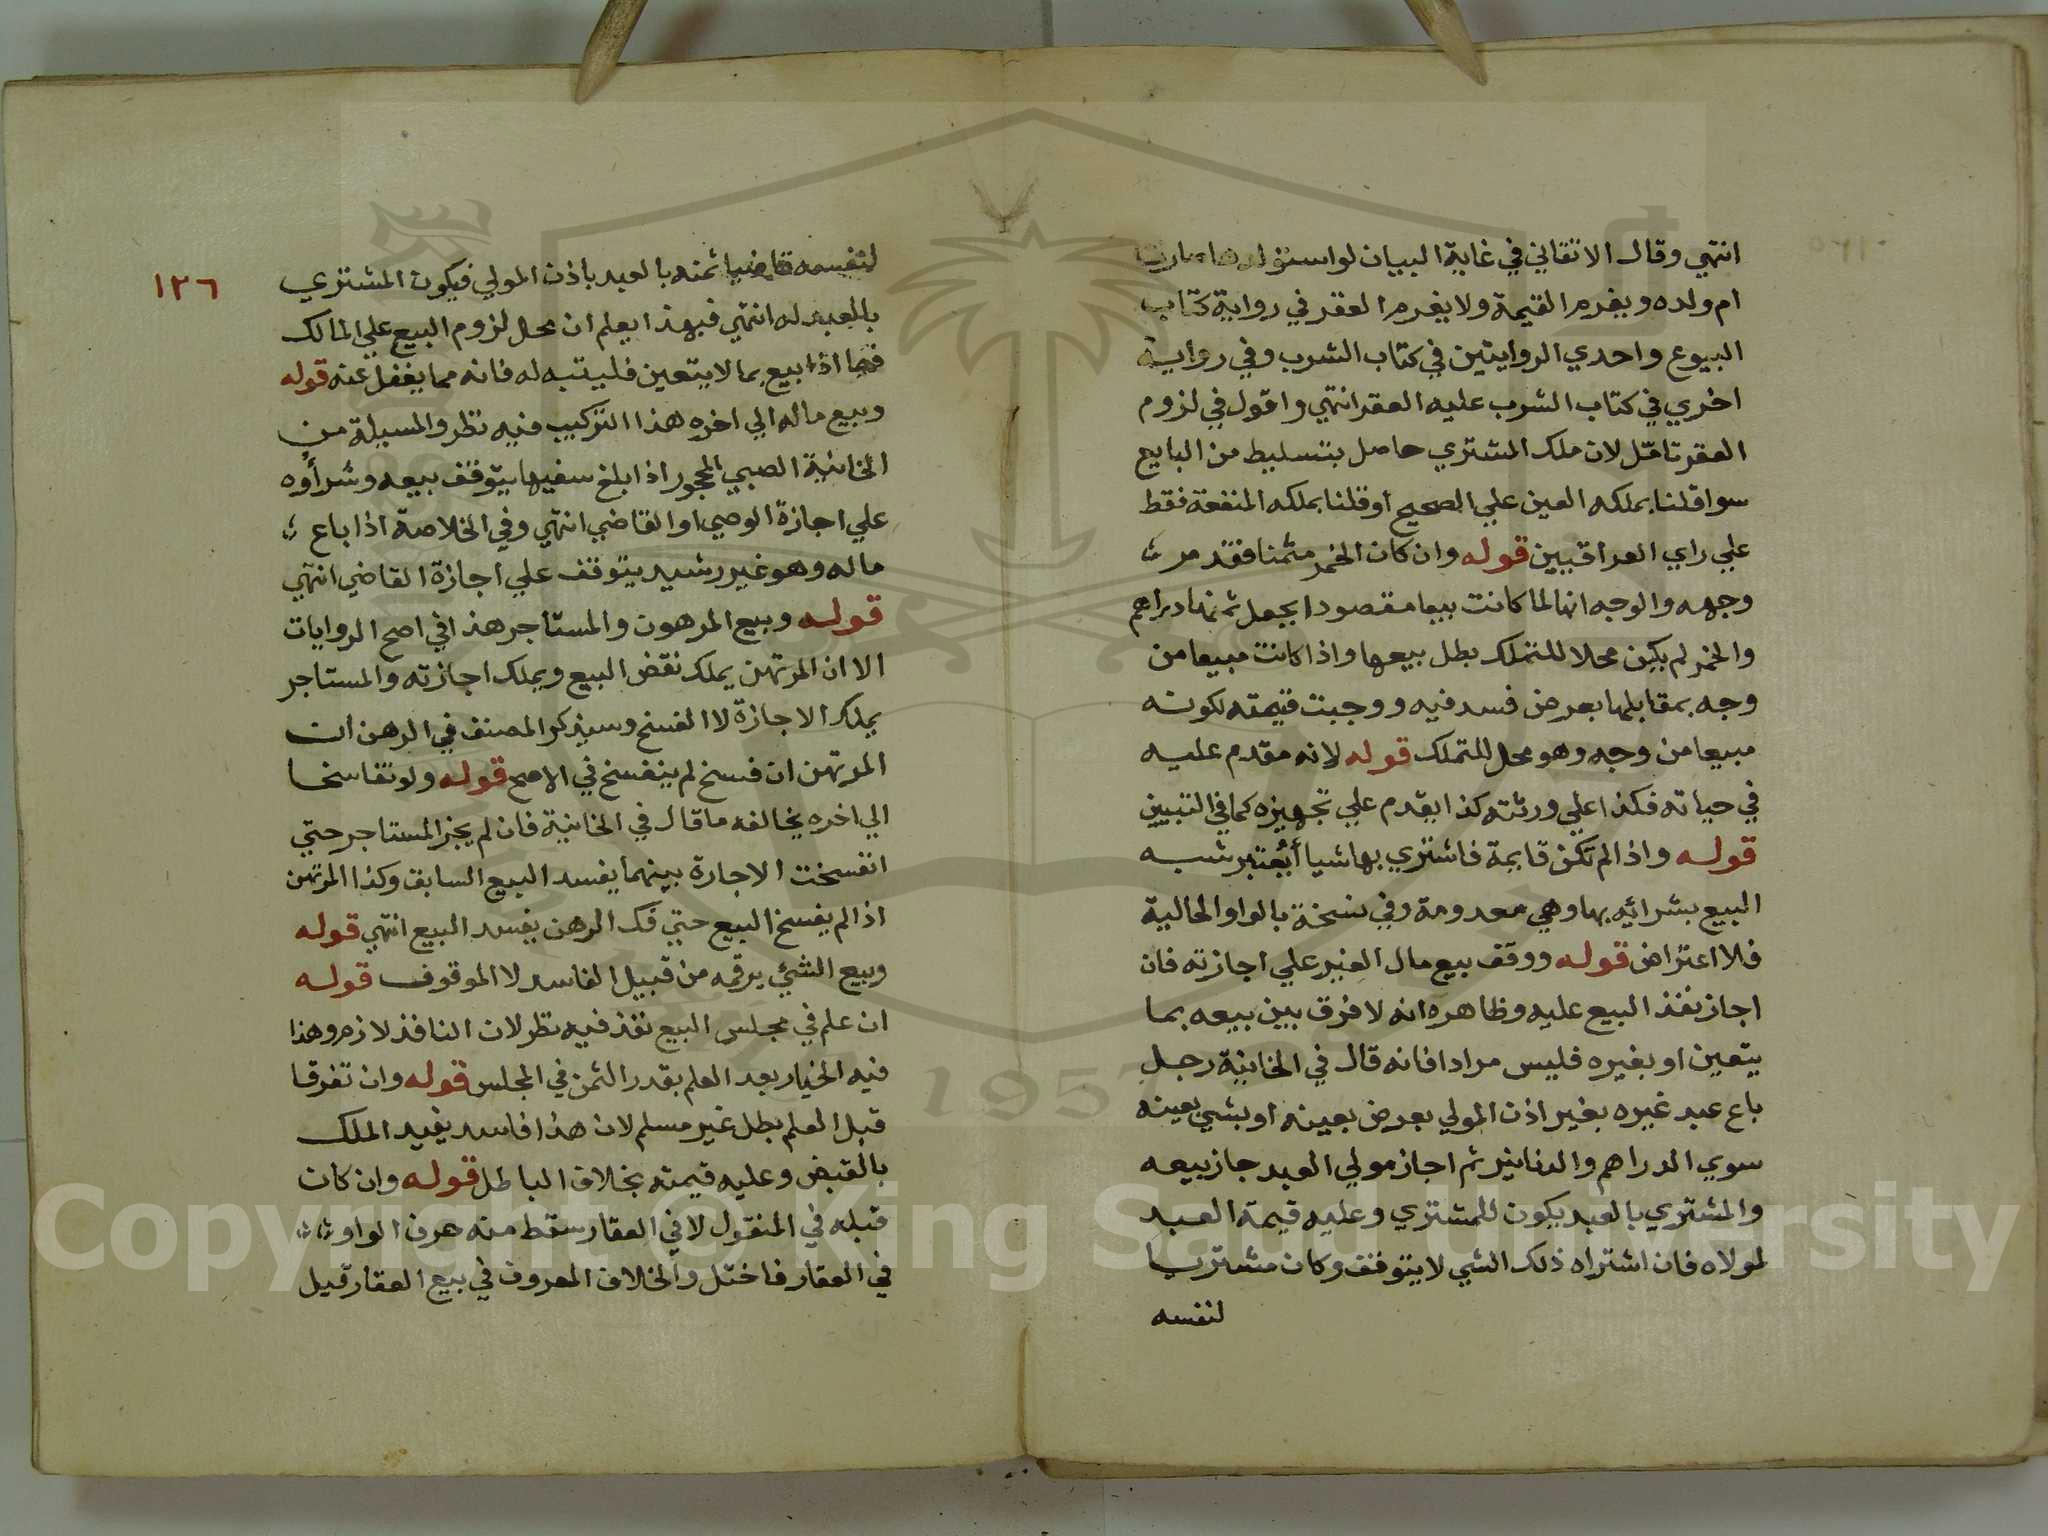 انتهي وقال الاتقاني في غاية البيان لو استولدها صارت
ام ولده ويغرم القيمة ولا يغرم العقر في رواية كتاب
البيوع واحدي الروايتين في كتاب الشرب وفي رواية
اخري في كتاب الشرب عليه العقر انتهي واقول في لزوم
العقر تامّل لان ملك المشتري حاصل بتسليط من البايع
سوا قلنا بملكه العين علي الصحيح او قلنا بملكه المنفعة فقط
علي راي العراقيين قوله وان كان الخمر مثمنا فقد مر
وجهه والوجه انها لما كانت بيعا مقصودا بجعل ثمنها دراهم
والخمر لم يكن محلا للتملك بطل بيعها واذا كانت مبيعا من
وجه بمقابلها بعرض فسد فيه ووجبت قيمته لكونه
مبيعا من وجه وهو محل للتملك قوله لانه مقدم عليه
في حياته فكذا علي ورثته كذا يقدم علي تجهيزه كما في التبيين
قوله واذا لم تكن قايمة فاشتري بها شيا أيُعتبر شبه
البيع بشرائه بها وهي معدومة وفي نسخة بالواو الحالية
فلا اعتراض قوله ووقف بيع مال الغير علي اجازته فان
اجاز نفذ البيع عليه وظاهره انه لا فرق بين بيعه بما
يتعين او بغيره فليس مرادا فانه قال في الخانية رجل
باع عبد غيره بغير اذن المولي بعرض بعينه او بشي بعينه
سوي الدراهم والدنانير ثم اجاز مولي العبد جاز بيعه
والمشتري بالعبد يكون للمشتري وعليه قيمة العبد
لمولاه فان اشتراه ذلك الشي لا يتوقف وكان مشتريا
لنفسه
١٢٦
لنفسه قاضيا ثمنه بالعبد باذن المولي فيكون المشتري
بالعبد له انتهي فبهذا يعلم ان محل لزوم البيع علي المالك
فيما اذا بيع بما لا يتعين فليتبه له فانه مما يغفل عنه قوله
وبيع ماله الي اخره هذا التركيب فيه نظر والمسيلة من
الخانية الصبي المحجور اذا بلغ سفيها يتوقف بيعه وشراؤه
علي اجازة الوصي او القاضي انتهي وفي الخلاصة اذا باع
ماله وهو غير رشيد يتوقف علي اجازة القاضي انتهي
قوله وبيع المرهون والمستاجر هذا في اصح الروايات
الا ان المرتهن يملك نقض البيع ويملك اجازته والمستاجر
يملك الاجازة لا الفسخ وسيذكر المصنف في الرهن ان
المرتهن ان فسخ لم ينفسخ في الاصح قوله ولو تفاسخا
الي اخره يخالفه ما قال في الخانية فان لم يجز المستاجر حتي
انفسخت الاجارة بينهما يفسد البيع السابق وكذا المرتهن
اذا لم يفسخ البيع حتي فك الرهن يفسد البيع انتهي قوله
وبيع الشئي برقمه من قبيل الفاسد لا الموقوف قوله
ان علم في مجلس البيع نفذ فيه نظر لان النافذ لازم وهذا
فيه الخيار بعد العلم بقدر الثمن في المجلس قوله وان تفرقا
قبل العلم بطل غير مسلم لان هذا فاسد يفيد الملك
بالقبض وعليه قيمته بخلاف الباطل قوله وان كان
قبله في المنقول لا في العقار سقط منه حرف الواو
في العقار فاختل والخلاف المعروف في بيع العقار قيل
Copyright © King Saud University
1957